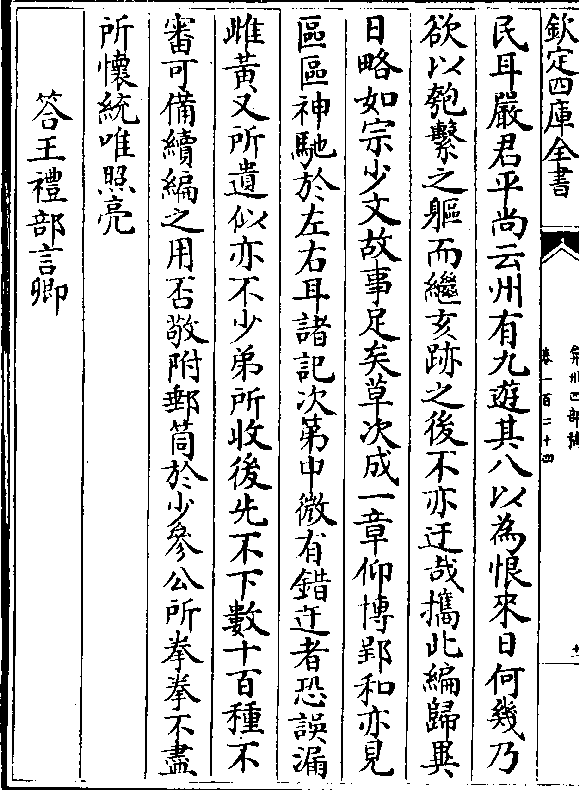 欽定四庫全書
弇州四部稿
卷一百二十四
十一
民耳嚴君平尚云州有九遊其八以為恨來日何幾乃
欲以匏繫之軀而繼亥跡之後不亦迂哉攜此編歸異
日略如宗少文故事足矣草次成一章仰博郢和亦見
區區神馳於左右耳諸記次第中微有錯迕者恐誤漏
雌黃又所遺似亦不少弟所收後先不下數十百種不
審可備續編之用否敬附郵筒於少參公所拳拳不盡
所懷統唯照亮
答王禮部言卿